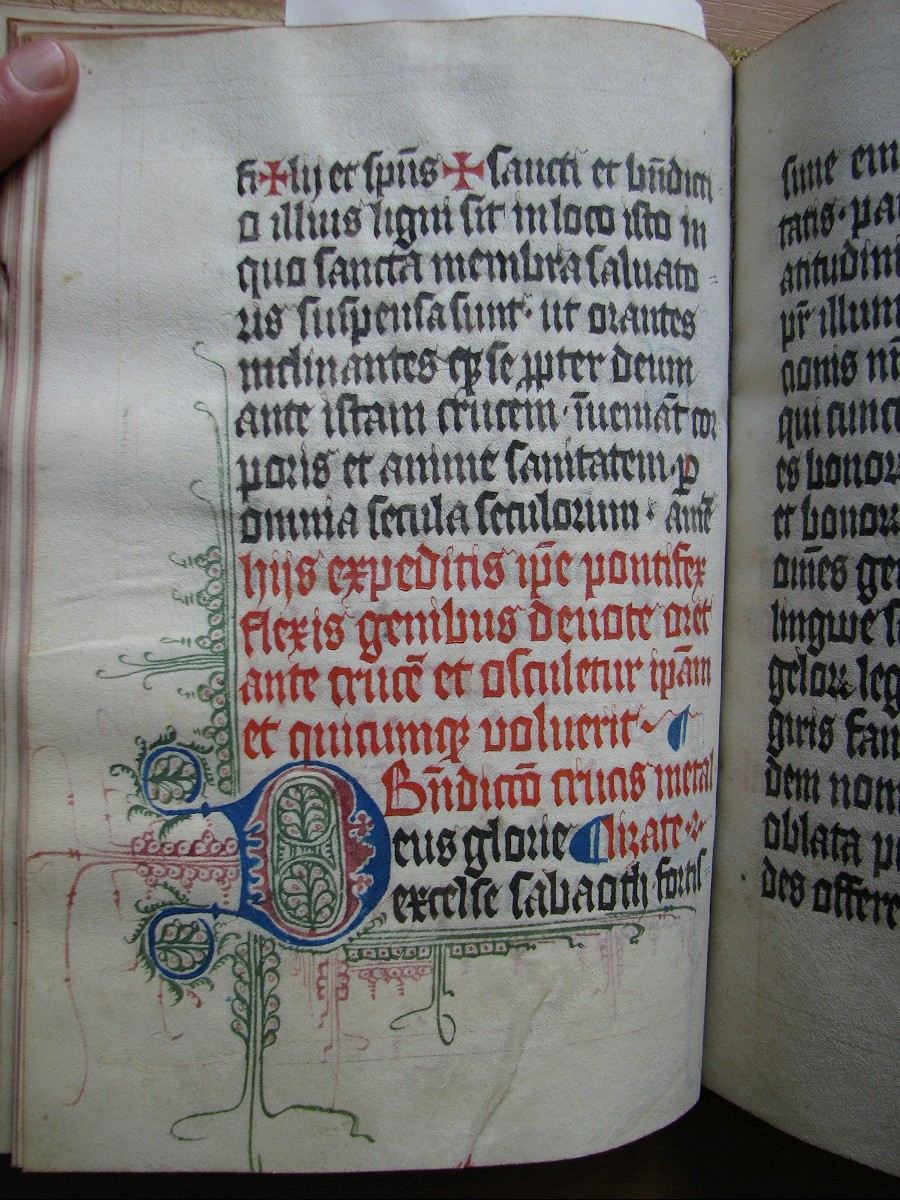 fi✠lij et sp̄us ✠ sancti et bn̄dicti
o illius ligni sit in loco isto in
quo sancta membra saluato
ris suspensa sunt · ut orantes
inclinantes qꝫ se ꝓpter deum
ante istam crucem · īueniāt cor
poris et anime sanitatem · ꝑ
omnia secula seculorum · amē
hijs expeditis ip̄e pontifex
flexis genibus deuote oret
ante crucē et osculetur ip̄am
et quicumqꝫ voluerit ¶
Bn̄dictō crucis metal
Deus glorie ¶ lizate ·
excelse sabaoth · fortis
sime em
tatis · pa
atitudini
pr̄ illum
nonis
qui cunct
es bonoꝝ
et bonoꝝ
om̄es ge
lingwe
geloꝝ leg
giris fam
dem nom
oblata p
des offere